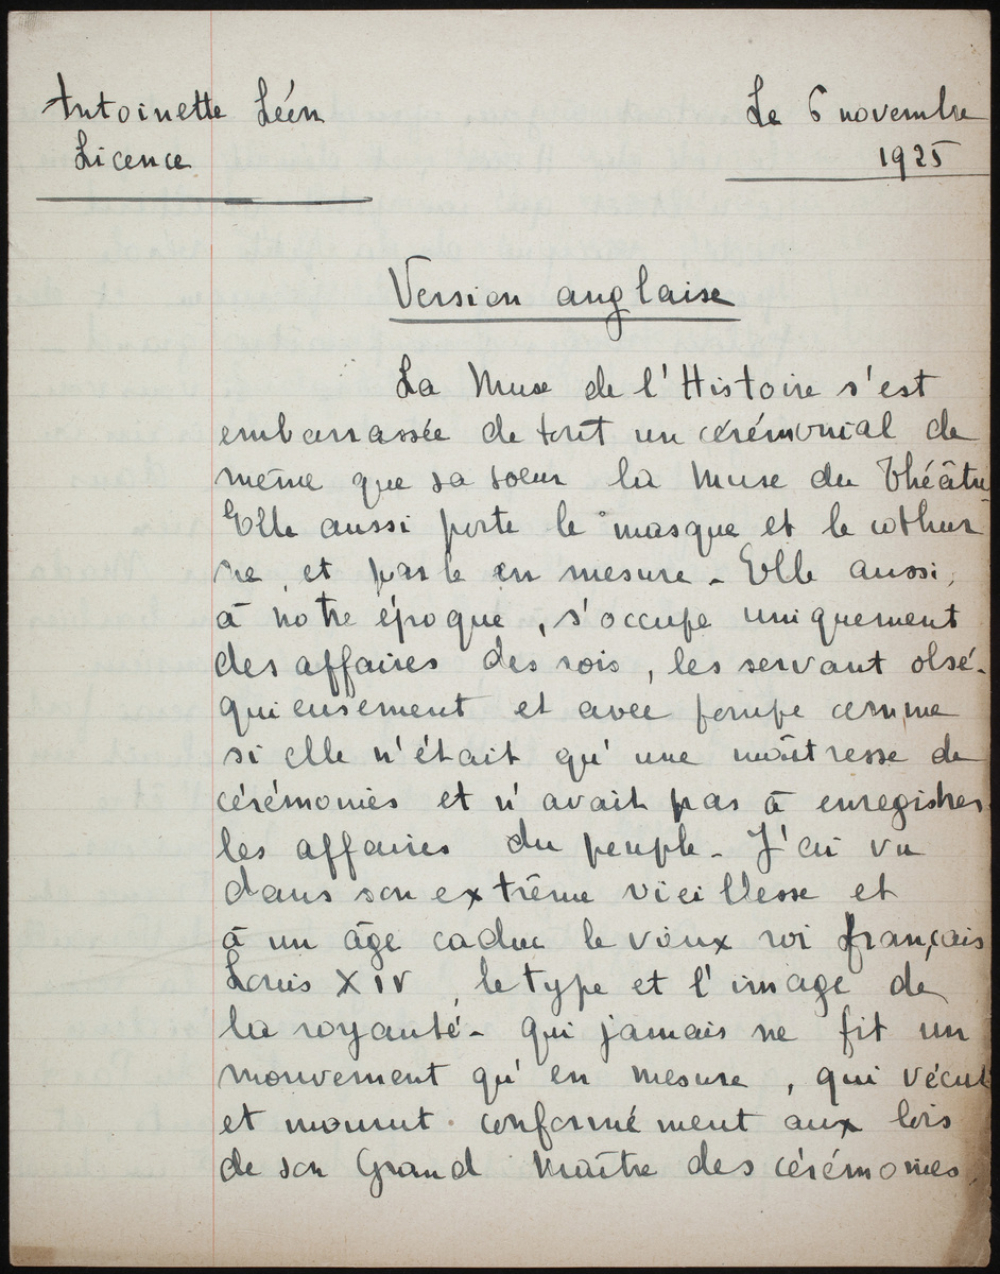 Antoinette Léon
Le 6 novembre
Licence
1925
Version anglaise
La Muse de l'Histoire s'est
embarrassée de tout un cérémonial de
même que sa soeur la Muse du Théâtre
Elle aussi porte le masque et le cothur
ne, et parle en mesure. Elle aussi,
à notre époque, s'occupe uniquement
des affaires des rois, les servant obsé-
quieusement et avec pompe comme
si elle n'était qu'une maîtresse de
cérémonies et n'avait pas à enregistrer
les affaires du peuple. J'ai vu
dans son extrême vieillesse et
à un âge caduc le vieux roi français
Louis XIV, le type et l'image de
la royauté - qui jamais ne fit un
mouvement qu'en mesure, qui vécut
et mourut conformément aux lois
de son Grand Maître des cérémonies